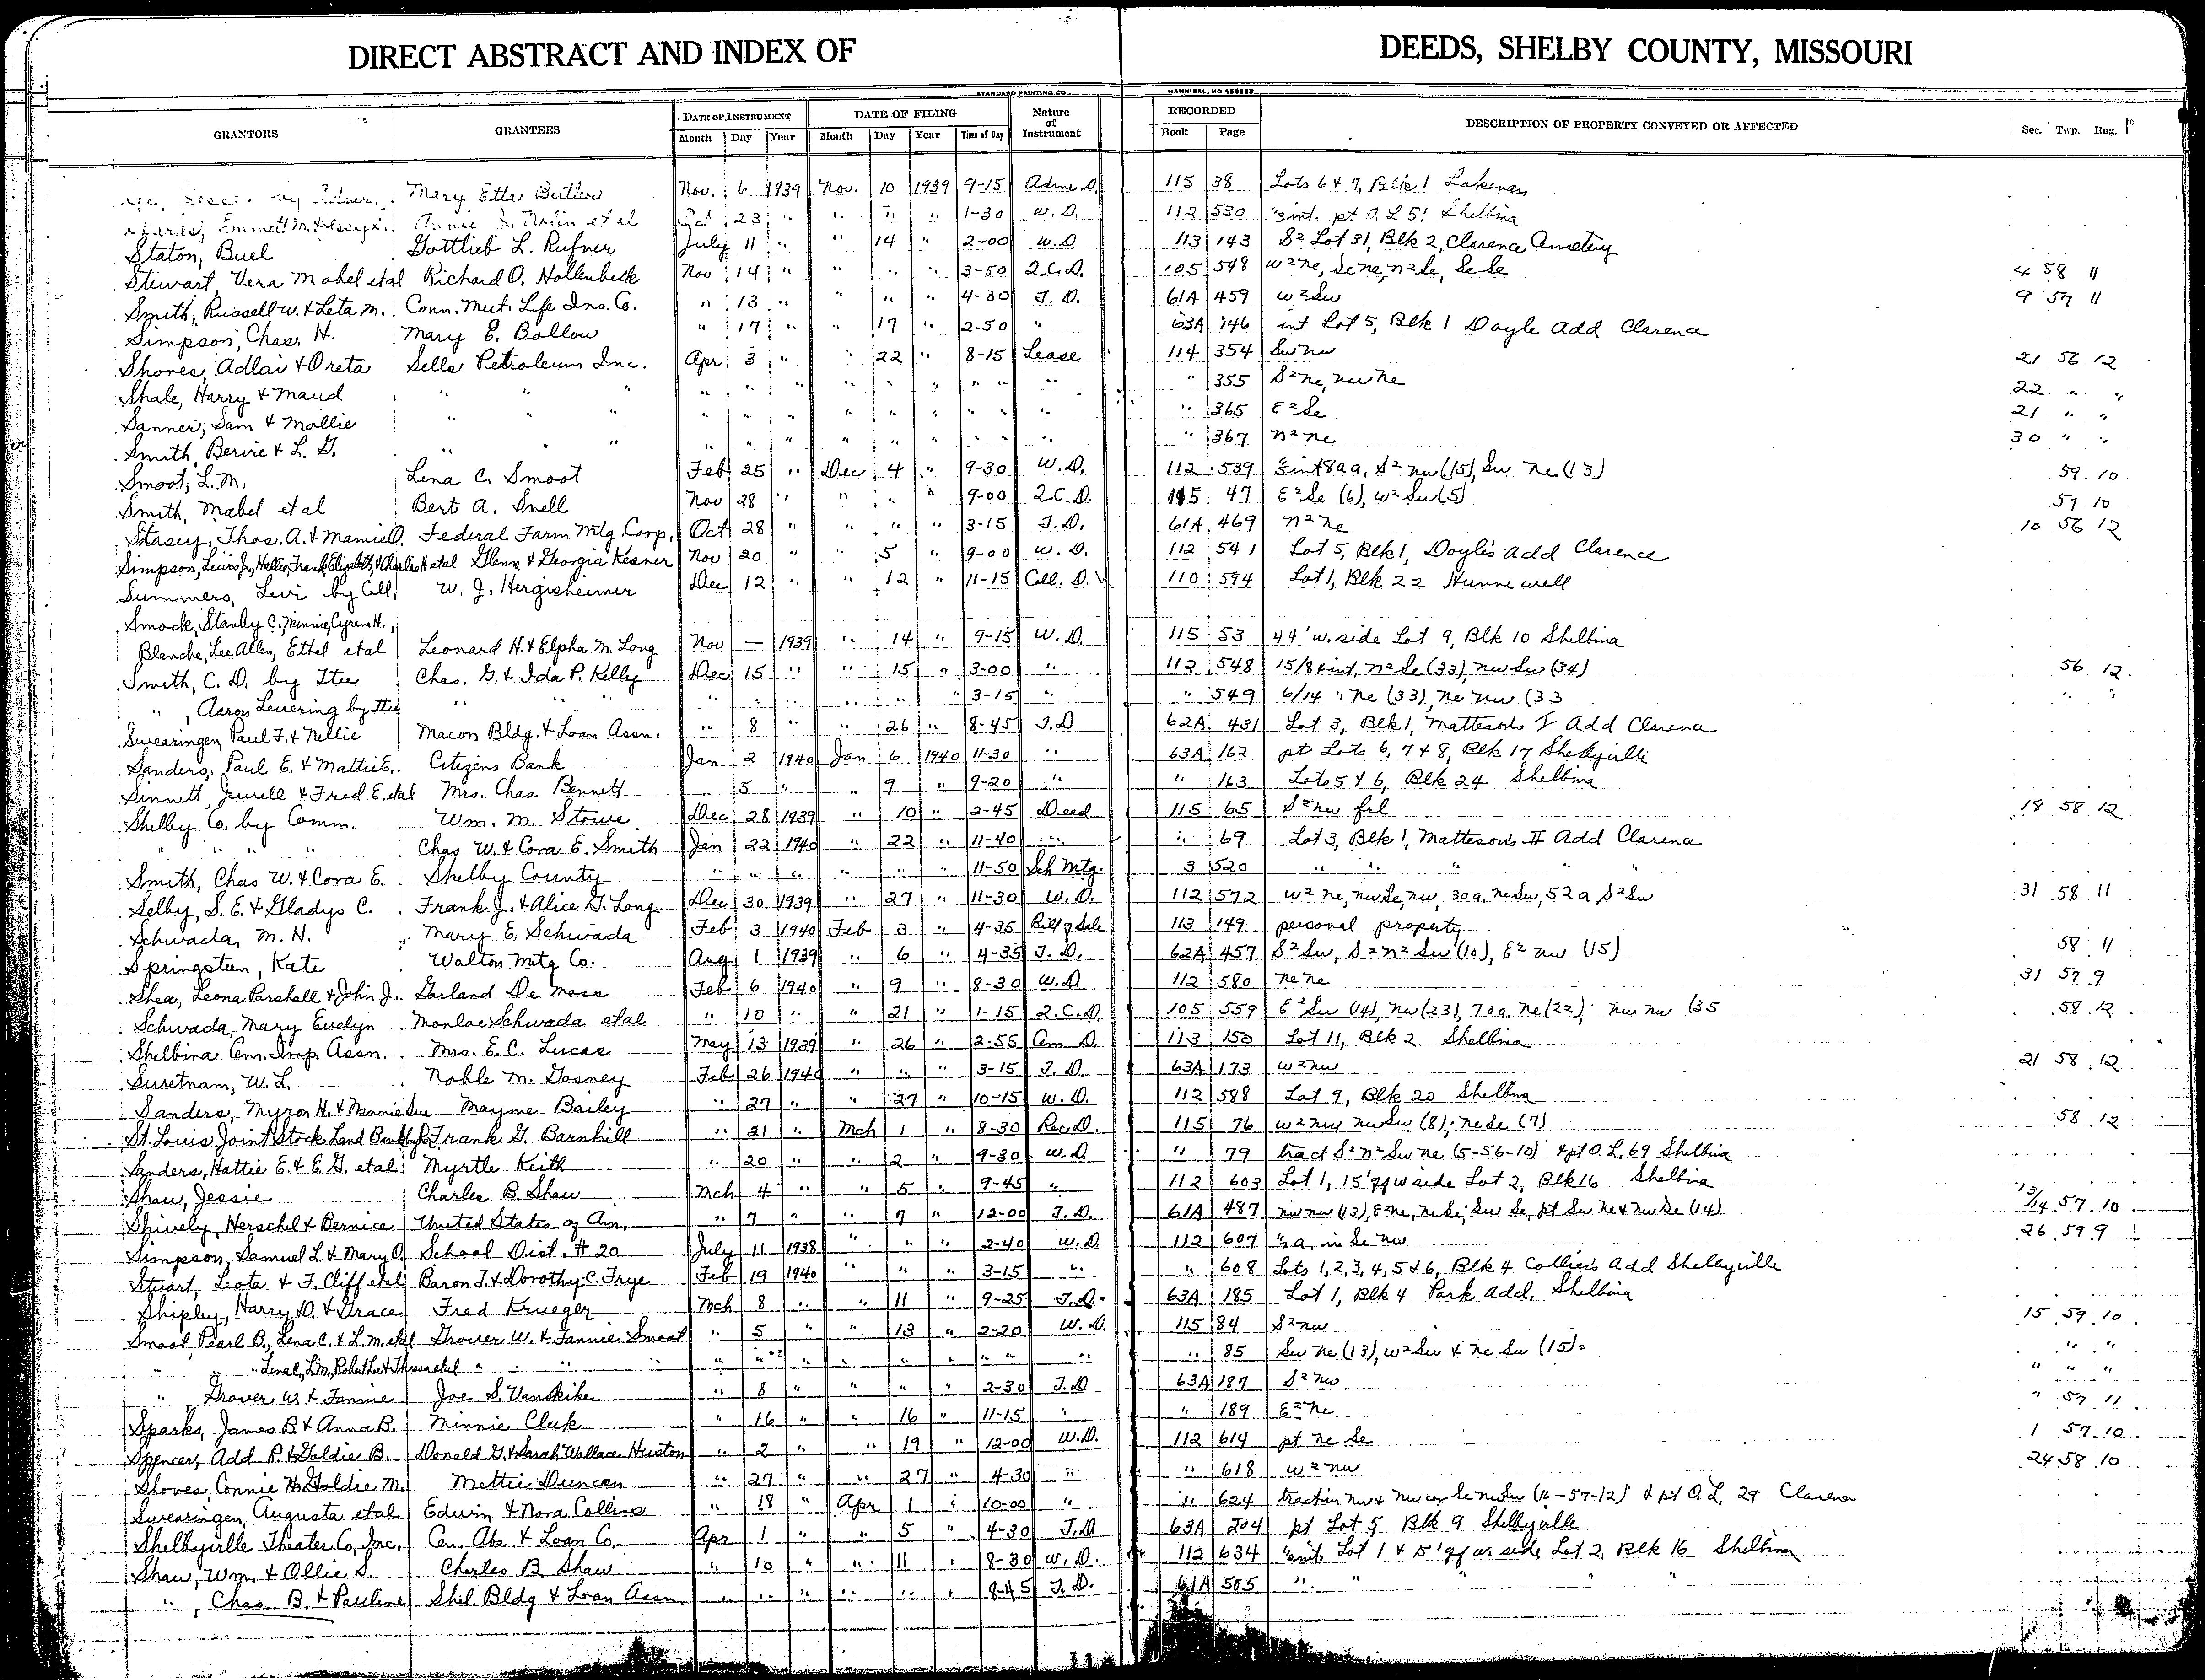 DIRECT ABSTRACT AND INDEX OF DEEDS, SHELBY COUNTY, MISSOURI
STANDARD PRINTING CO. HANNIBAL, MO.
GRANTORS GRANTEES DATE OF INSTRUMENT DATE OF FILING Nature of Instrument RECORDED DESCRIPTION OF PROPERTY CONVEYED OR AFFECTED Sec. Twp. Rng.
Month Day Year Month Day Year Time of Day Book Page
Mary Etta Butler Nov. 6 1939 Nov. 10 1939 9-15 Adm. D. 115 38 Lots 6 & 7, Blk 1 Lakenan
Emmett M. et al Oct 23 " " " " 1-30 W.D. 112 530 int. pt O.L 51 Shelbina
Staton, Buel Gottlieb L. Rufner July 11 " " 14 " 2-00 W.D 113 143 S² Lot 31, Blk 2, Clarence Cemetery
Stewart, Vera Mabel et al Richard O. Hollenbeck Nov 14 " " " " 3-50 Q.C.D. 105 548 W² ne, Se ne, n² Se, Se Se 4 58 11
Smith, Russell W. & Leta M. Conn. Mut. Life Ins. Co. " 13 " " " " 4-30 T.D. 61A 459 W² Sw 9 57 11
Simpson, Chas. H. Mary E. Ballow " 17 " " 17 " 2-50 " 63A 146 int Lot 5, Blk 1 Doyle Add Clarence
Shores, Adlai & Oreta Sells Petroleum Inc. Apr 3 " " 22 " 8-15 Lease 114 354 Sw nw 21 56 12
Shale, Harry & Maud " " " " " " " " " " " " 355 S² ne, nw ne 22 " "
Sanner, Sam & Mollie " " " " " " " " " " " 365 E² Se 21 " "
Smith, & L. G. " " " " " " " " " " " 367 n² ne 30 " "
Smoot, L.M. Lena C. Smoot Feb 25 " Dec 4 " 9-30 W.D. 112 539 S² nw (15), Sw ne (13) 59 10
Smith, Mabel et al Bert A. Snell Nov 28 " " " " 9-00 Q.C.D. 115 47 E² Se (6), W² Sw (5) 57 10
Stasey, Thos. A. & Mamie O. Federal Farm Mtg. Corp. Oct 28 " " " " 3-15 T.D. 61A 469 n² ne 10 56 12
Simpson, Lewis J., Hallie, Frank, Elizabeth, & Charles H et al Glenn & Georgia Kesner Nov 20 " " 5 " 9-00 W.D. 112 541 Lot 5, Blk 1, Doyle's Add Clarence
Summers, Levi by Coll. W. J. Hergisheimer Dec 12 " " 12 " 11-15 Coll. D. 110 594 Lot 1, Blk 22 Hunnewell
Smock, Stanley C., Minnie, Cyrena H.,
Blanche, Lee Allen, Ethel et al Leonard H. & Elpha M. Long Nov — 1939 " 14 " 9-15 W.D. 115 53 44' W. side Lot 9, Blk 10 Shelbina
Smith, C. D. by Tee Chas. G. & Ida P. Kelly Dec 15 " " 15 " 3-00 " 112 548 15/84 int, n² Se (33), nw Sw (34) 56 12
" , Aaron Levering by Tee " " " " " " " " 3-15 " " 549 6/14 " ne (33), ne nw (33 " "
Swearingen, Paul F. & Nellie Macon Bldg. & Loan Assn. " 8 " " 26 " 8-45 T.D 62A 431 Lot 3, Blk 1, Mattesons I Add Clarence
Sanders, Paul E. & Mattie E. Citizens Bank Jan 2 1940 Jan 6 1940 11-30 " 63A 162 pt Lots 6, 7 & 8, Blk 17 Shelbyville
Sinnett, Jewell & Fred E. et al Mrs. Chas. Bennett " 5 " " 9 " 9-20 " " 163 Lots 5 & 6, Blk 24 Shelbina
Shelby Co. by Comm. Wm. M. Stowe Dec 28 1939 " 10 " 2-45 Deed 115 65 S² nw frl 18 58 12
" " " " Chas W. & Cora E. Smith Jan 22 1940 " 22 " 11-40 " " 69 Lot 3, Blk 1, Mattesons II Add Clarence
Smith, Chas W. & Cora E. Shelby County " " " " " " 11-50 Sch Mtg. 3 520 " " " " "
Selby, S. E. & Gladys C. Frank J. & Alice G. Long Dec 30 1939 " 27 " 11-30 W.D. 112 572 W² ne, nw Se, nw, 30a. ne Sw, 52 a S² Sw 31 58 11
Schwada, M. H. Mary E. Schwada Feb 3 1940 Feb 3 " 4-35 Bill of Sale 113 149 personal property
Springsteen, Kate Walton Mtg Co. Aug 1 1939 " 6 " 4-35 T.D. 62A 457 S² Sw, S² n² Sw (10), E² nw (15) 58 11
Shea, Leona Parshall & John J. Garland De Moss Feb 6 1940 " 9 " 8-30 W.D 112 580 ne ne 31 57 9
Schwada, Mary Evelyn Schwada et al " 10 " " 21 " 1-15 Q.C.D 105 559 E² Sw (14), nw (23), 70a. ne (22); nw nw (35 58 12
Shelbina Cem. Imp. Assn. Mrs. E. C. Lucas May 13 1939 " 26 " 2-55 Cem D. 113 150 Lot 11, Blk 2 Shelbina
Suretnam, W. L. Noble M. Gosney Feb 26 1940 " " " 3-15 T.D. 63A 173 W² nw 21 58 12
Sanders, Myron H. & Nannie Sue Mayme Bailey " 27 " " 27 " 10-15 W.D. 112 588 Lot 9, Blk 20 Shelbina
St. Louis Joint Stock Land Bank Frank G. Barnhill " 21 " Mch 1 " 8-30 Rec D. 115 76 W² nw, nw Sw (8); ne Se (7) 58 12
Sanders, Hattie E. & E. G. et al Myrtle Keith " 20 " " 2 " 9-30 W.D. " 79 tract S² n² Sw ne (5-56-10) & pt O.L, 69 Shelbina
Shaw, Jessie Charles B. Shaw Mch 4 " " 5 " 9-45 " 112 603 Lot 1, 15' off W side Lot 2, Blk 16 Shelbina
Shively, Herschel & Bernice United States of Am. " 7 " " 7 " 12-00 T.D. 61A 487 nw nw (13), E² ne, ne Se; Sw Se, pt Sw ne & nw Se (14) 13/14 57 10
Simpson, Samuel L. & Mary O. School Dist. # 20 July 11 1938 " " " 2-40 W.D 112 607 ½ a. in Se nw 26 59 9
Stuart, Leota & F. Cliff et al Baron F. & Dorothy C. Frye Feb 19 1940 " " " 3-15 " " 608 Lots 1, 2, 3, 4, 5 & 6, Blk 4 Collier's Add Shelbyville
Shipley, Harry D. & Grace Fred Krueger Mch 8 " " 11 " 9-25 T.D. 63A 185 Lot 1, Blk 4 Park Add. Shelbina
Smoot, Pearl B., Lena C. & L. M. et al Grover W. & Fannie Smoot " 5 " " 13 " 2-20 W.D. 115 84 S² nw 15 59 10
" " Lena C, L.M, Robert Lee & et al " " " " " " " " " " " " 85 Sw ne (13), W² Sw & ne Sw (15) " " "
" , Grover W. & Fannie Joe S. Vanskike " 8 " " " " 2-30 T.D 63A 187 S² nw " " "
Sparks, James B. & Anna B. Minnie Cleek " 16 " " 16 " 11-15 " " 189 E² ne " 57 11
Spencer, Add R. & Goldie B. Donald G. & Sarah Wallace Huston " 2 " " 19 " 12-00 W.D. 112 614 pt ne Se 1 57 10
Shoves, Connie H. Goldie M. Mettie Duncan " 27 " " 27 " 4-30 " " 618 W² nw 24 58 10
Swearingen, Augusta et al Edwin & Nora Collins " 18 " Apr 1 " 10-00 " " 624 tract in nw & nw cor Se nw Sw (16-57-12) & pt O.L. 29 Clarence
Shelbyville Theater Co, Inc. Cen. Abs. & Loan Co. Apr 1 " " 5 " 4-30 T.D 63A 204 pt Lot 5 Blk 9 Shelbyville
Shaw, Wm. & Ollie S. Charles B. Shaw " 10 " " 11 " 8-30 W.D. 112 634 int. Lot 1 & 15' off W. side Lot 2, Blk 16 Shelbina
" , Chas B. & Pauline Shel. Bldg & Loan Assn. " " " " " " 8-45 T.D. 61A 505 " " " " "